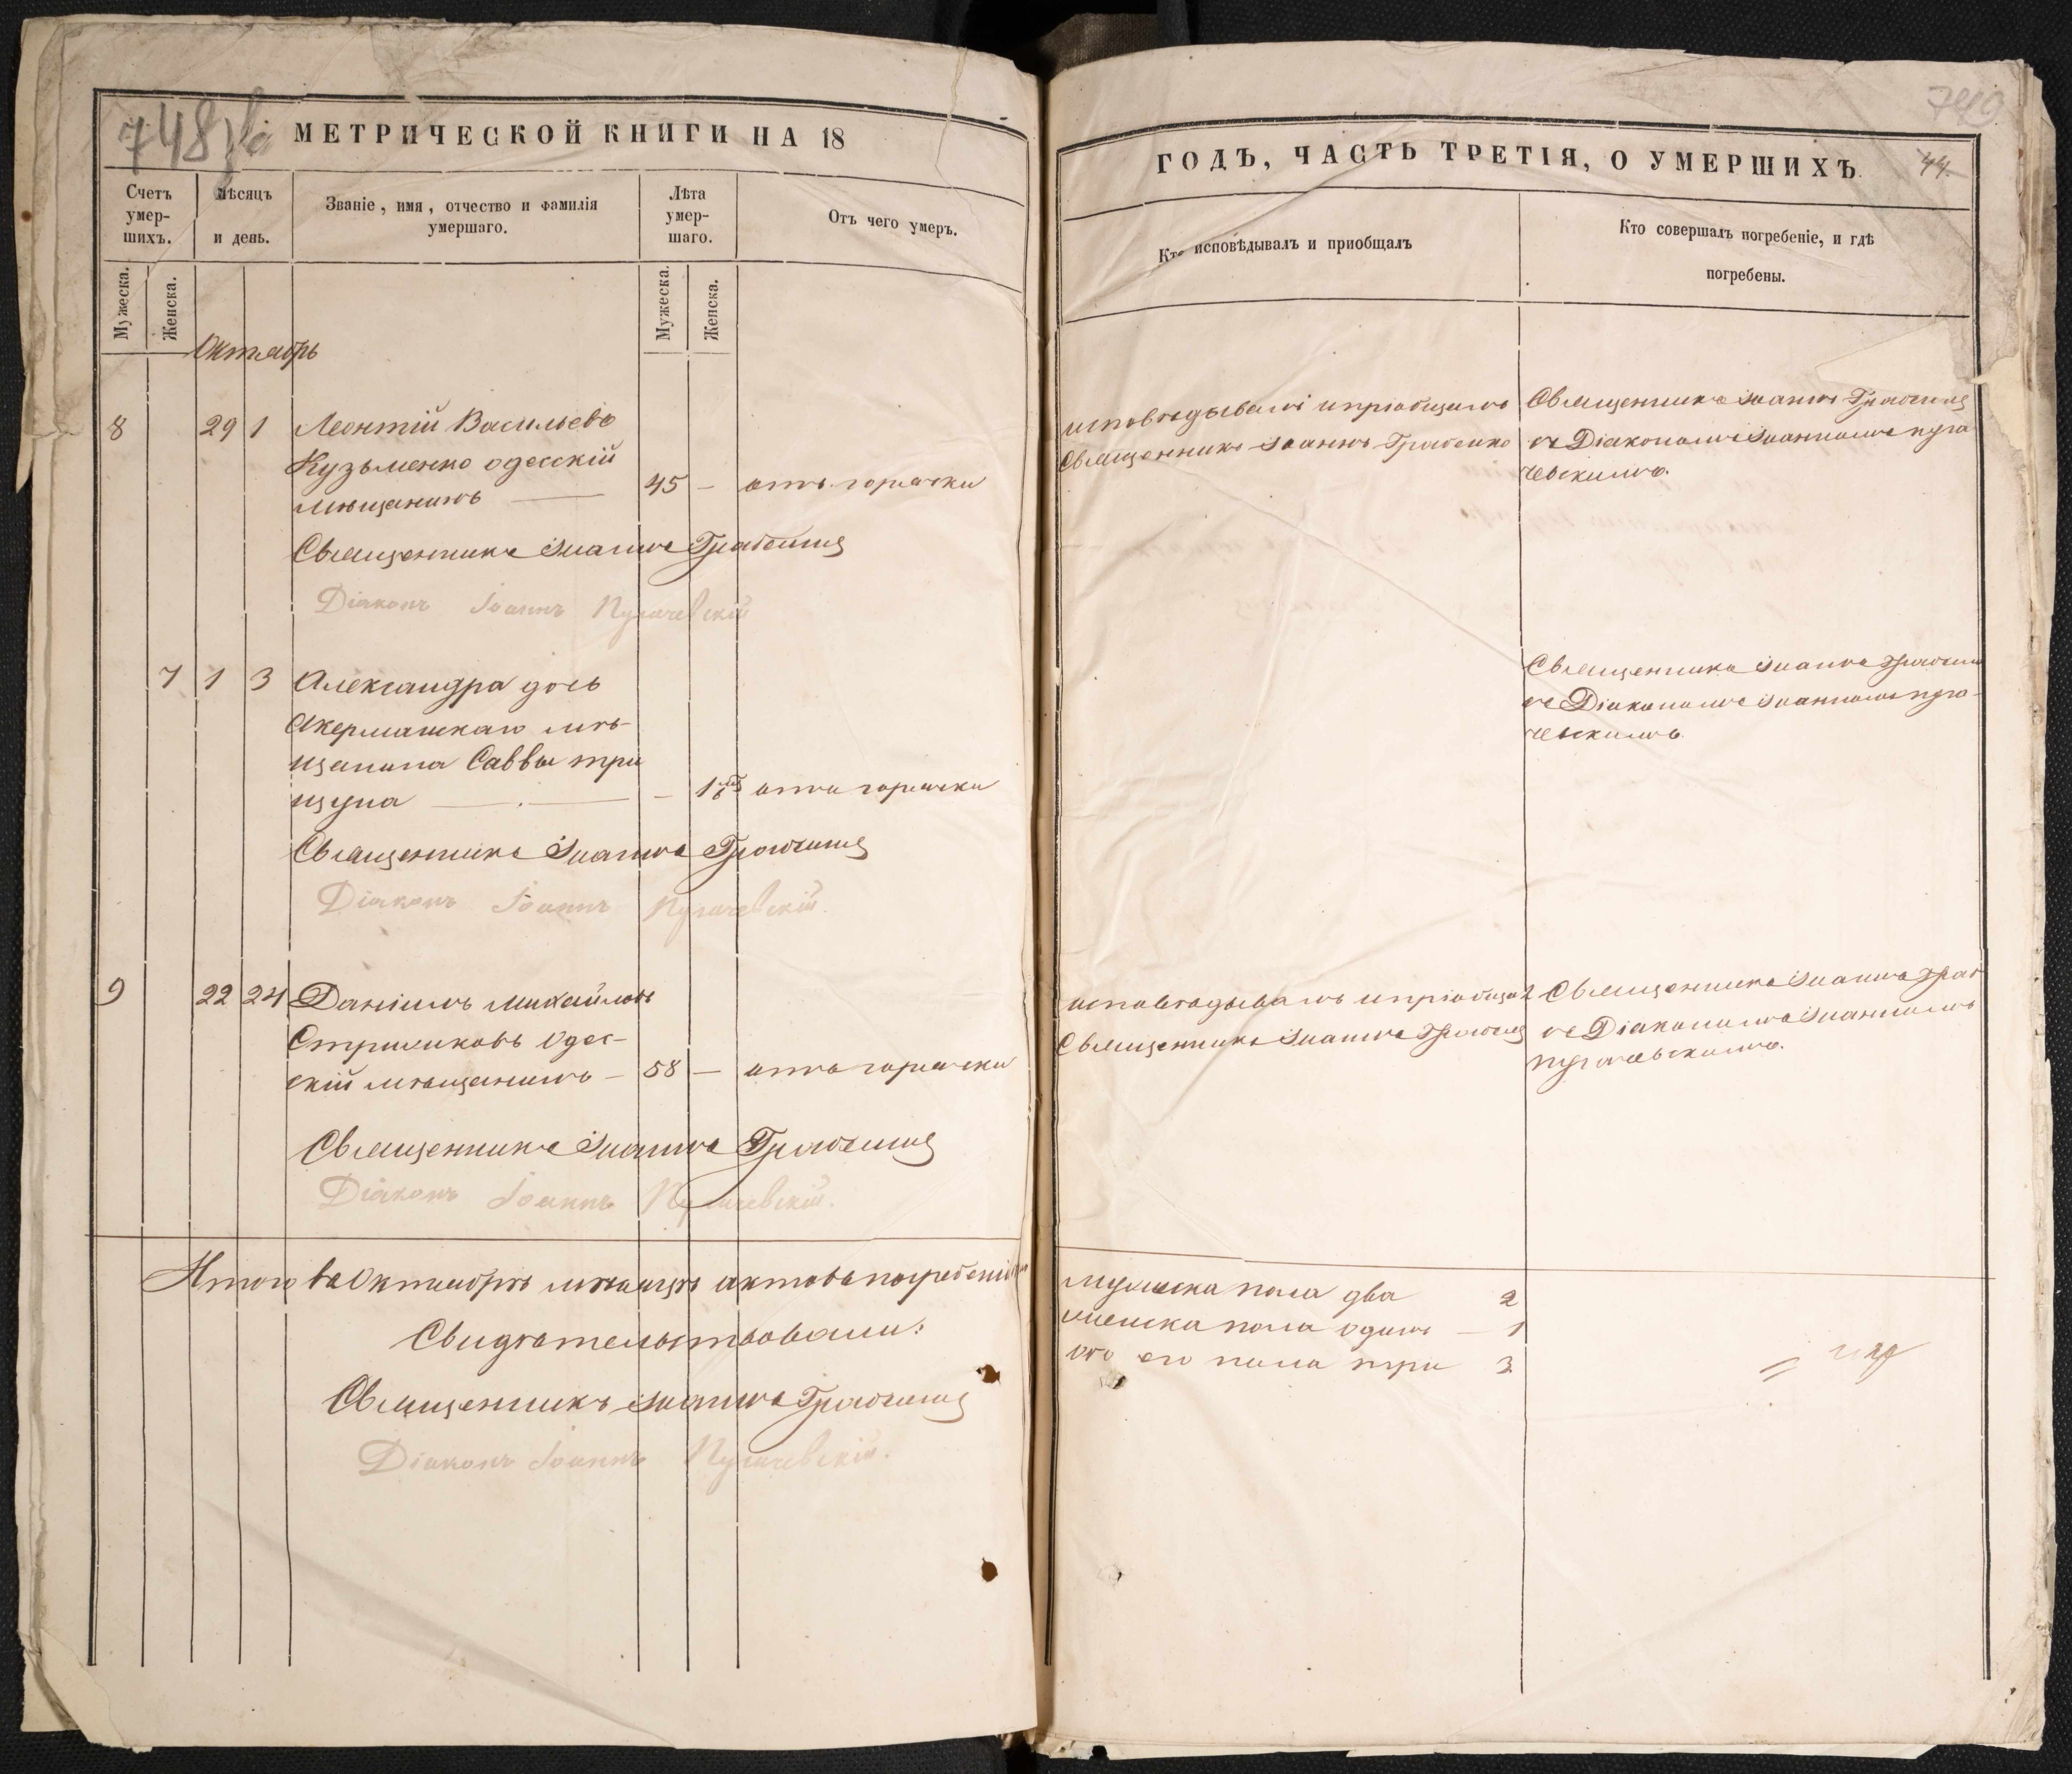 748
МЕТРИЧЕСКОЙ КНИГИ НА 18
Счетъ умер-шихъ.
мѣсяцъ и день.
Званіе, имя, отчество и фамилія умершаго.
Лѣта умер-шаго.
Отъ чего умеръ.
Мужеска.
Женска.
Мужеска.
Женска.
Октябрь
8 29 1 Леонтій Васильевъ
Кузьменко одесскій
мѣщанинъ 45 - отъ горячки
Священникъ Іоаннъ
Діаконъ Іоаннъ Пугачевскій
7 1 3 Александра дочь
Акерманскаго мѣ-
щанина Саввы три
щуна - 1 отъ горячки
Священникъ Іоаннъ
Діаконъ Іоаннъ Пугачевскій.
9 22 24 Даніилъ Михайловъ
Стрижиковъ Одес-
скій мѣщанинъ - 58 - отъ горячки
Священникъ Іоаннъ
Діаконъ Іоаннъ Пугачевскій.
Итого въ Октябрѣ мѣсяцѣ актовъ погребенія
Свидѣтельствовали:
Священникъ Іоаннъ
Діаконъ Іоаннъ Пугачевскій.
749
ГОДЪ, ЧАСТЬ ТРЕТІЯ, О УМЕРШИХЪ.
44.
Кто исповѣдывалъ и приобщалъ
Кто совершалъ погребеніе, и гдѣ
погребены.
исповѣдывалъ и пріобщалъ
Священникъ Іоаннъ
Священникъ Іоаннъ
съ Діакономъ Іоанномъ Пуга
чевскимъ.
Священникъ Іоаннъ
съ Діакономъ Іоанномъ Пуга-
чевскимъ
исповѣдывалъ и пріобщал
Священникъ Іоаннъ
Священникъ Іоаннъ
съ Діакономъ Іоанномъ
Пугачевскимъ.
Мужеска пола два 2
женска пола одинъ - 1
обо его пола три 3